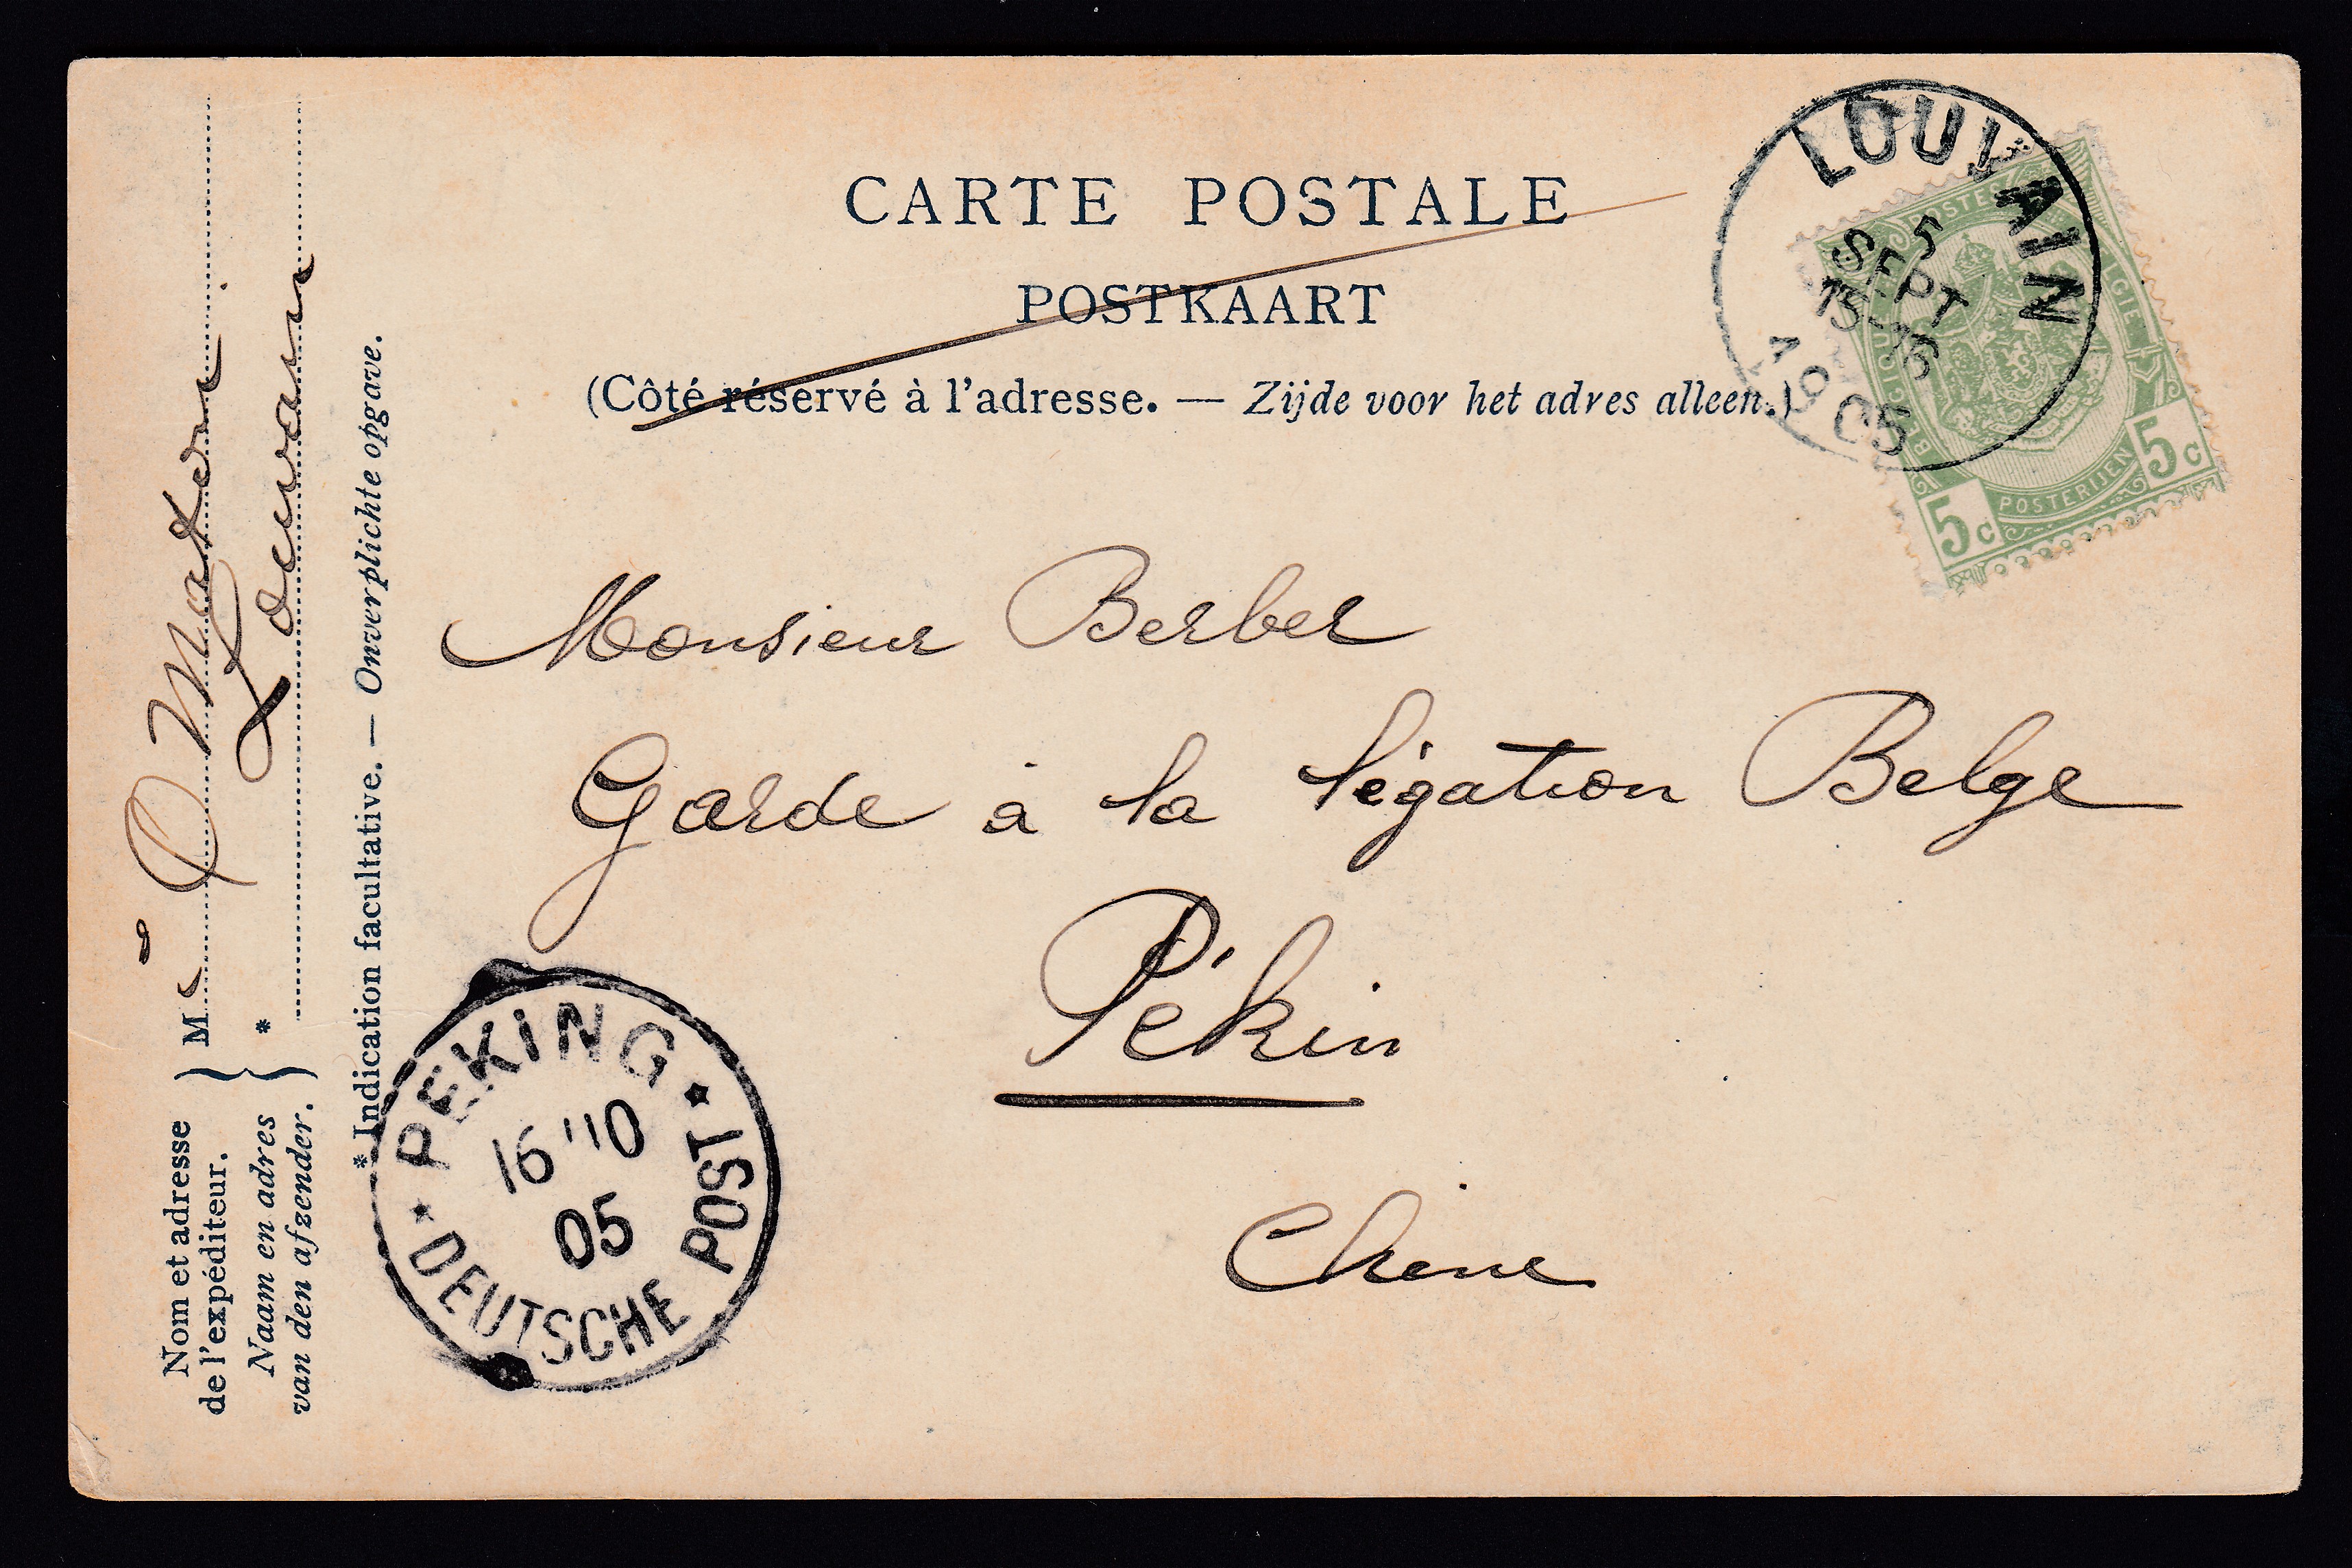 CARTE POSTALE
POSTKAART
(Côté réservé à l'adresse. — Zijde voor het adres alleen.)
LOUVAIN
5
SEPT
15-16
05
POSTES
BELGIQUE
BELGIE
POSTERIJEN
5c 5c
Monsieur Berber
Garde à la légation Belge
Pékin
Chine
PEKING
16 10
05
DEUTSCHE POST
Nom et adresse
de l'expéditeur.
Naam en adres
van den afzender.
M
*
Louvain
* Indication facultative. — Onverplichte opgave.